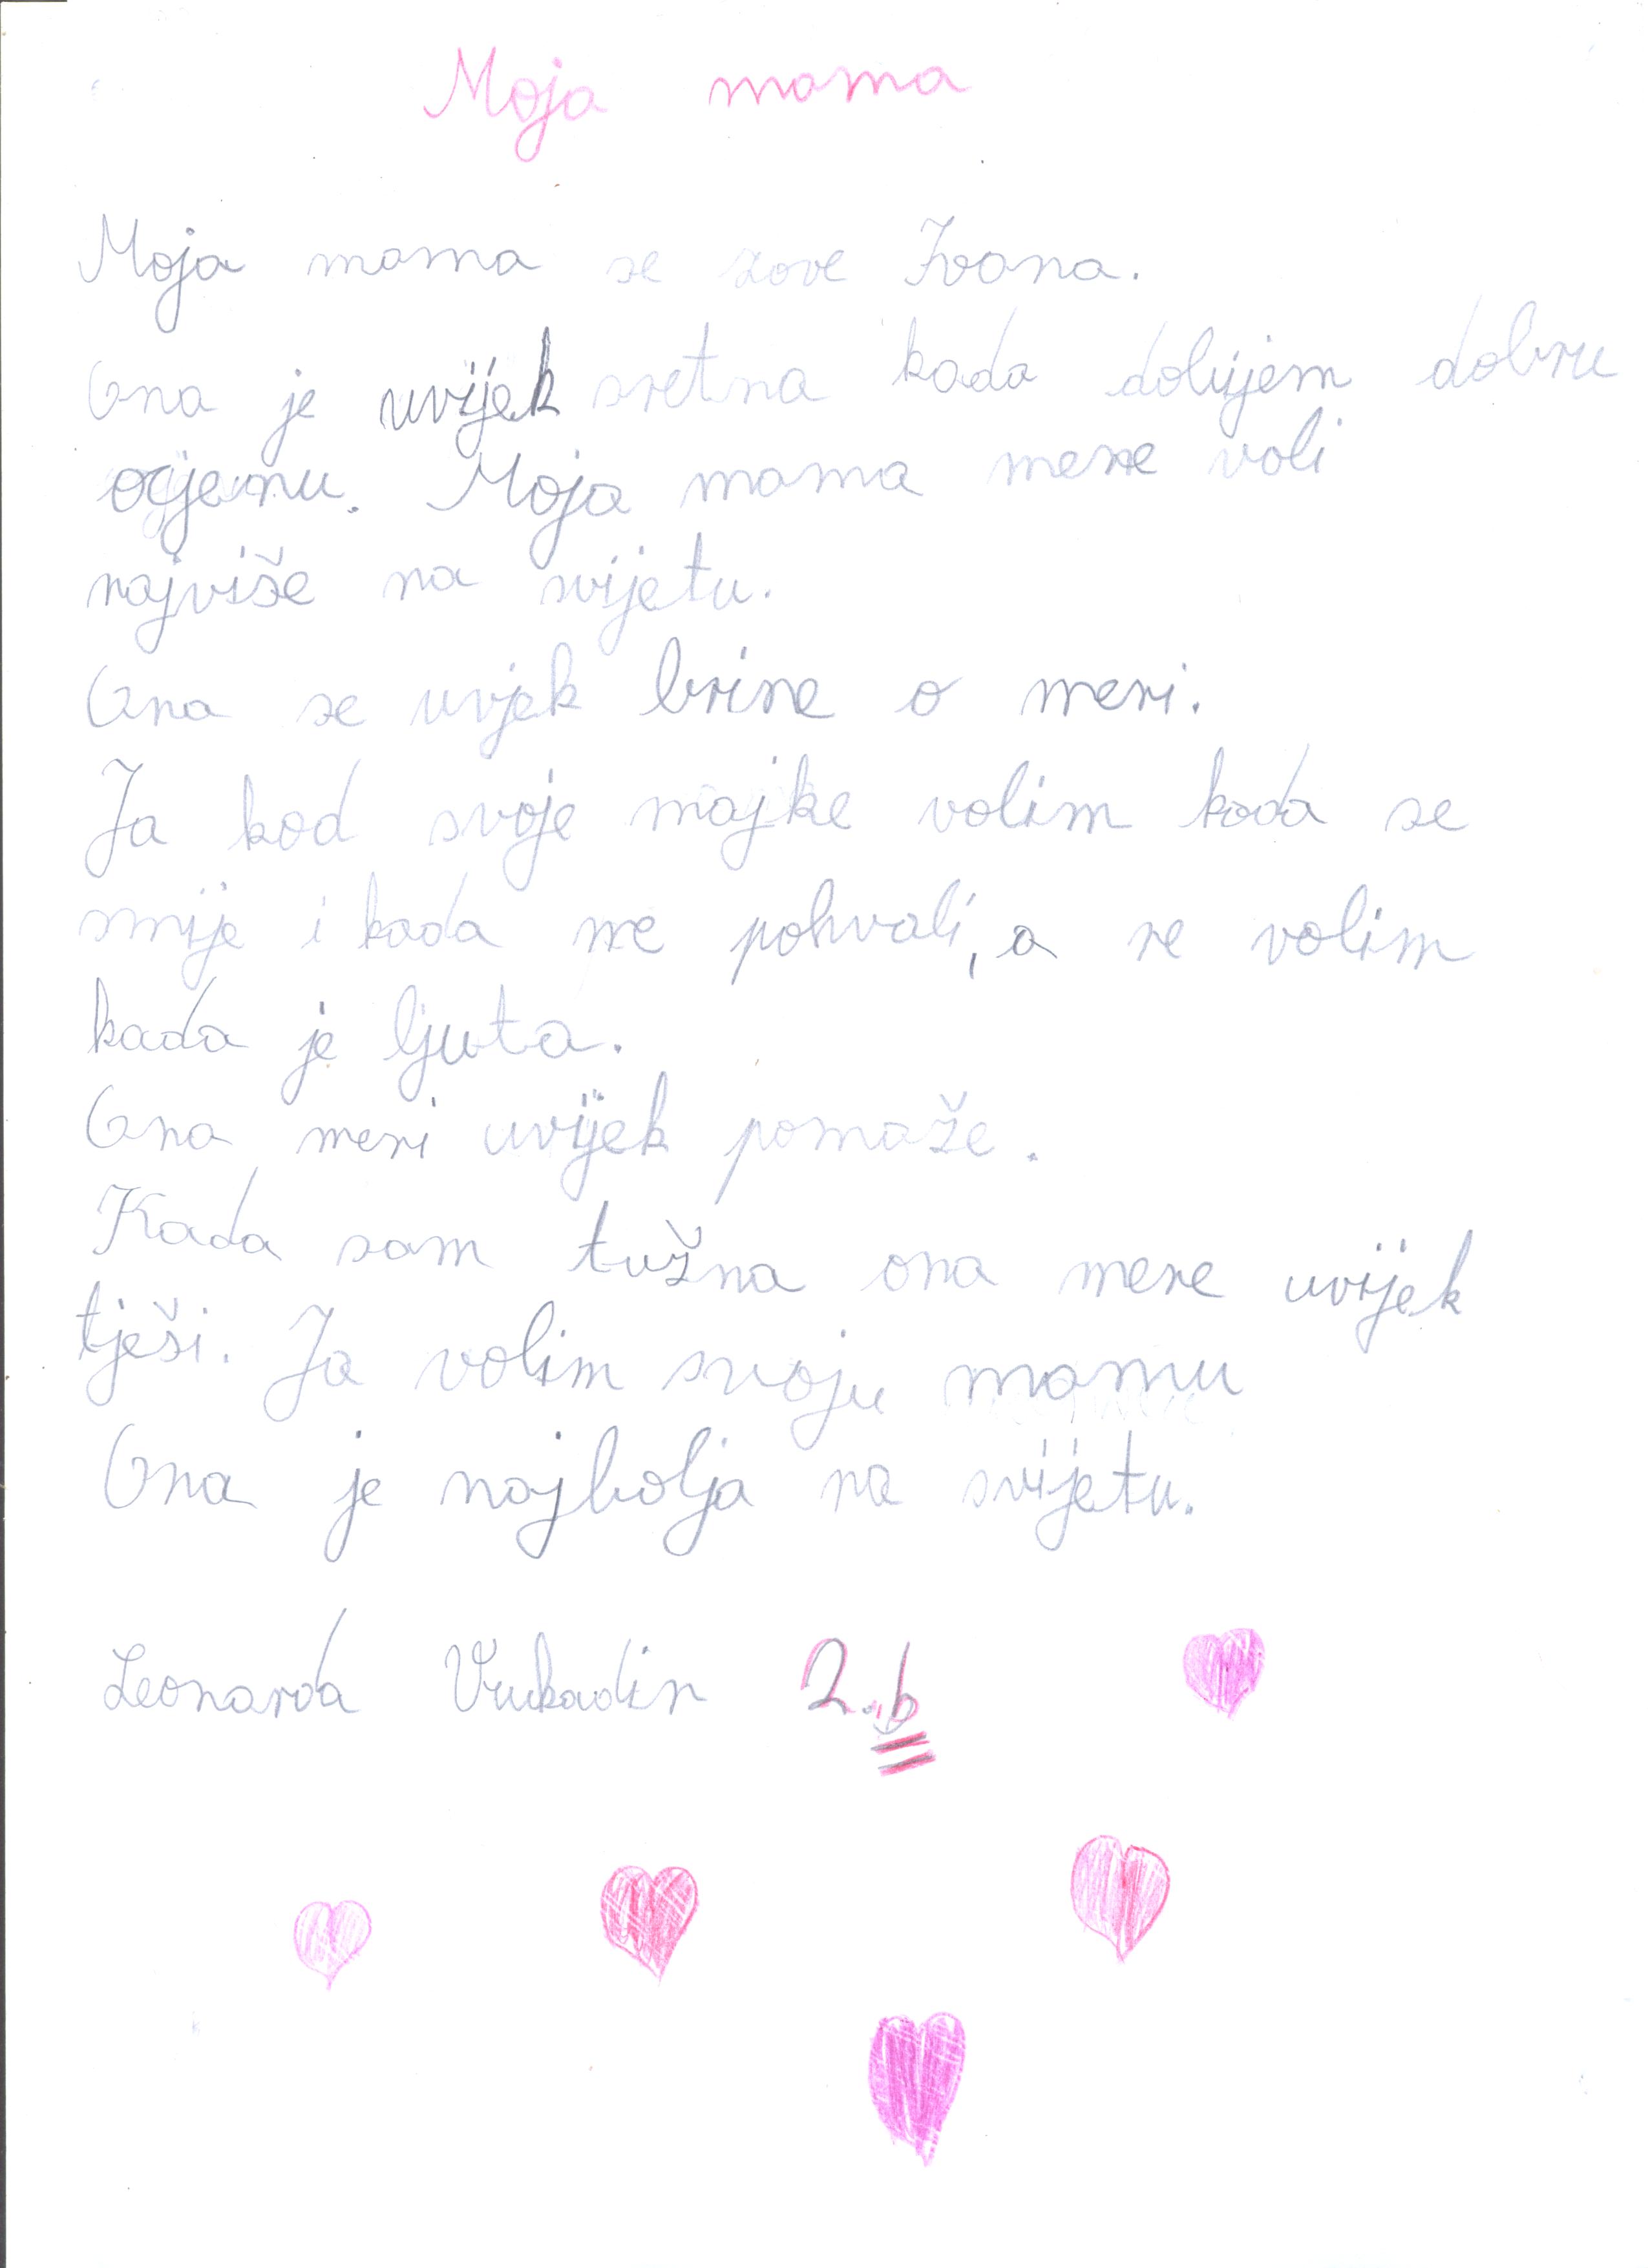 Moja mama
Moja mama se zove Ivana.
Ona je uvijek sretna kada dobijem dobru
ocjenu. Moja mama mene voli
najviše na svijetu.
Ona se uvjek brine o meni.
Ja kod svoje majke volim kada se
smije i kada me pohvali, a ne volim
kada je ljuta.
Ona meni uvijek pomaže.
Kada sam tužna ona mene uvijek
tješi. Ja volim svoju mamu
Ona je najbolja na svijetu.
Leonarda Vukadin 2.b